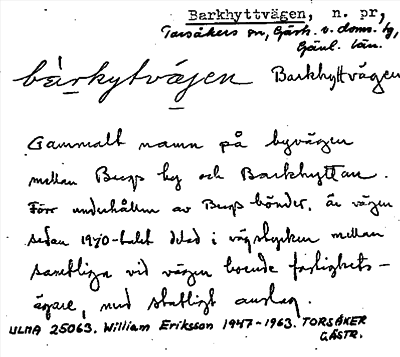 Barkhyttvägen, n. pr,
Torsåkers sn, Gästr. v. doms. hg,
Gävl. län.
bàrkytvä̀jen Barkhyttvägen
Gammalt namn på byvägen
mellan Bergs by och Barkhyttan.
Förr underhållen av Bergs bönder, är vägen
sedan 1940-talet delad i vägstycken mellan
samtliga vid vägen boende fastighets-
ägare, med statligt anslag.
ULMA 25063. William Eriksson 1947-1963. TORSÅKER
GÄSTR.